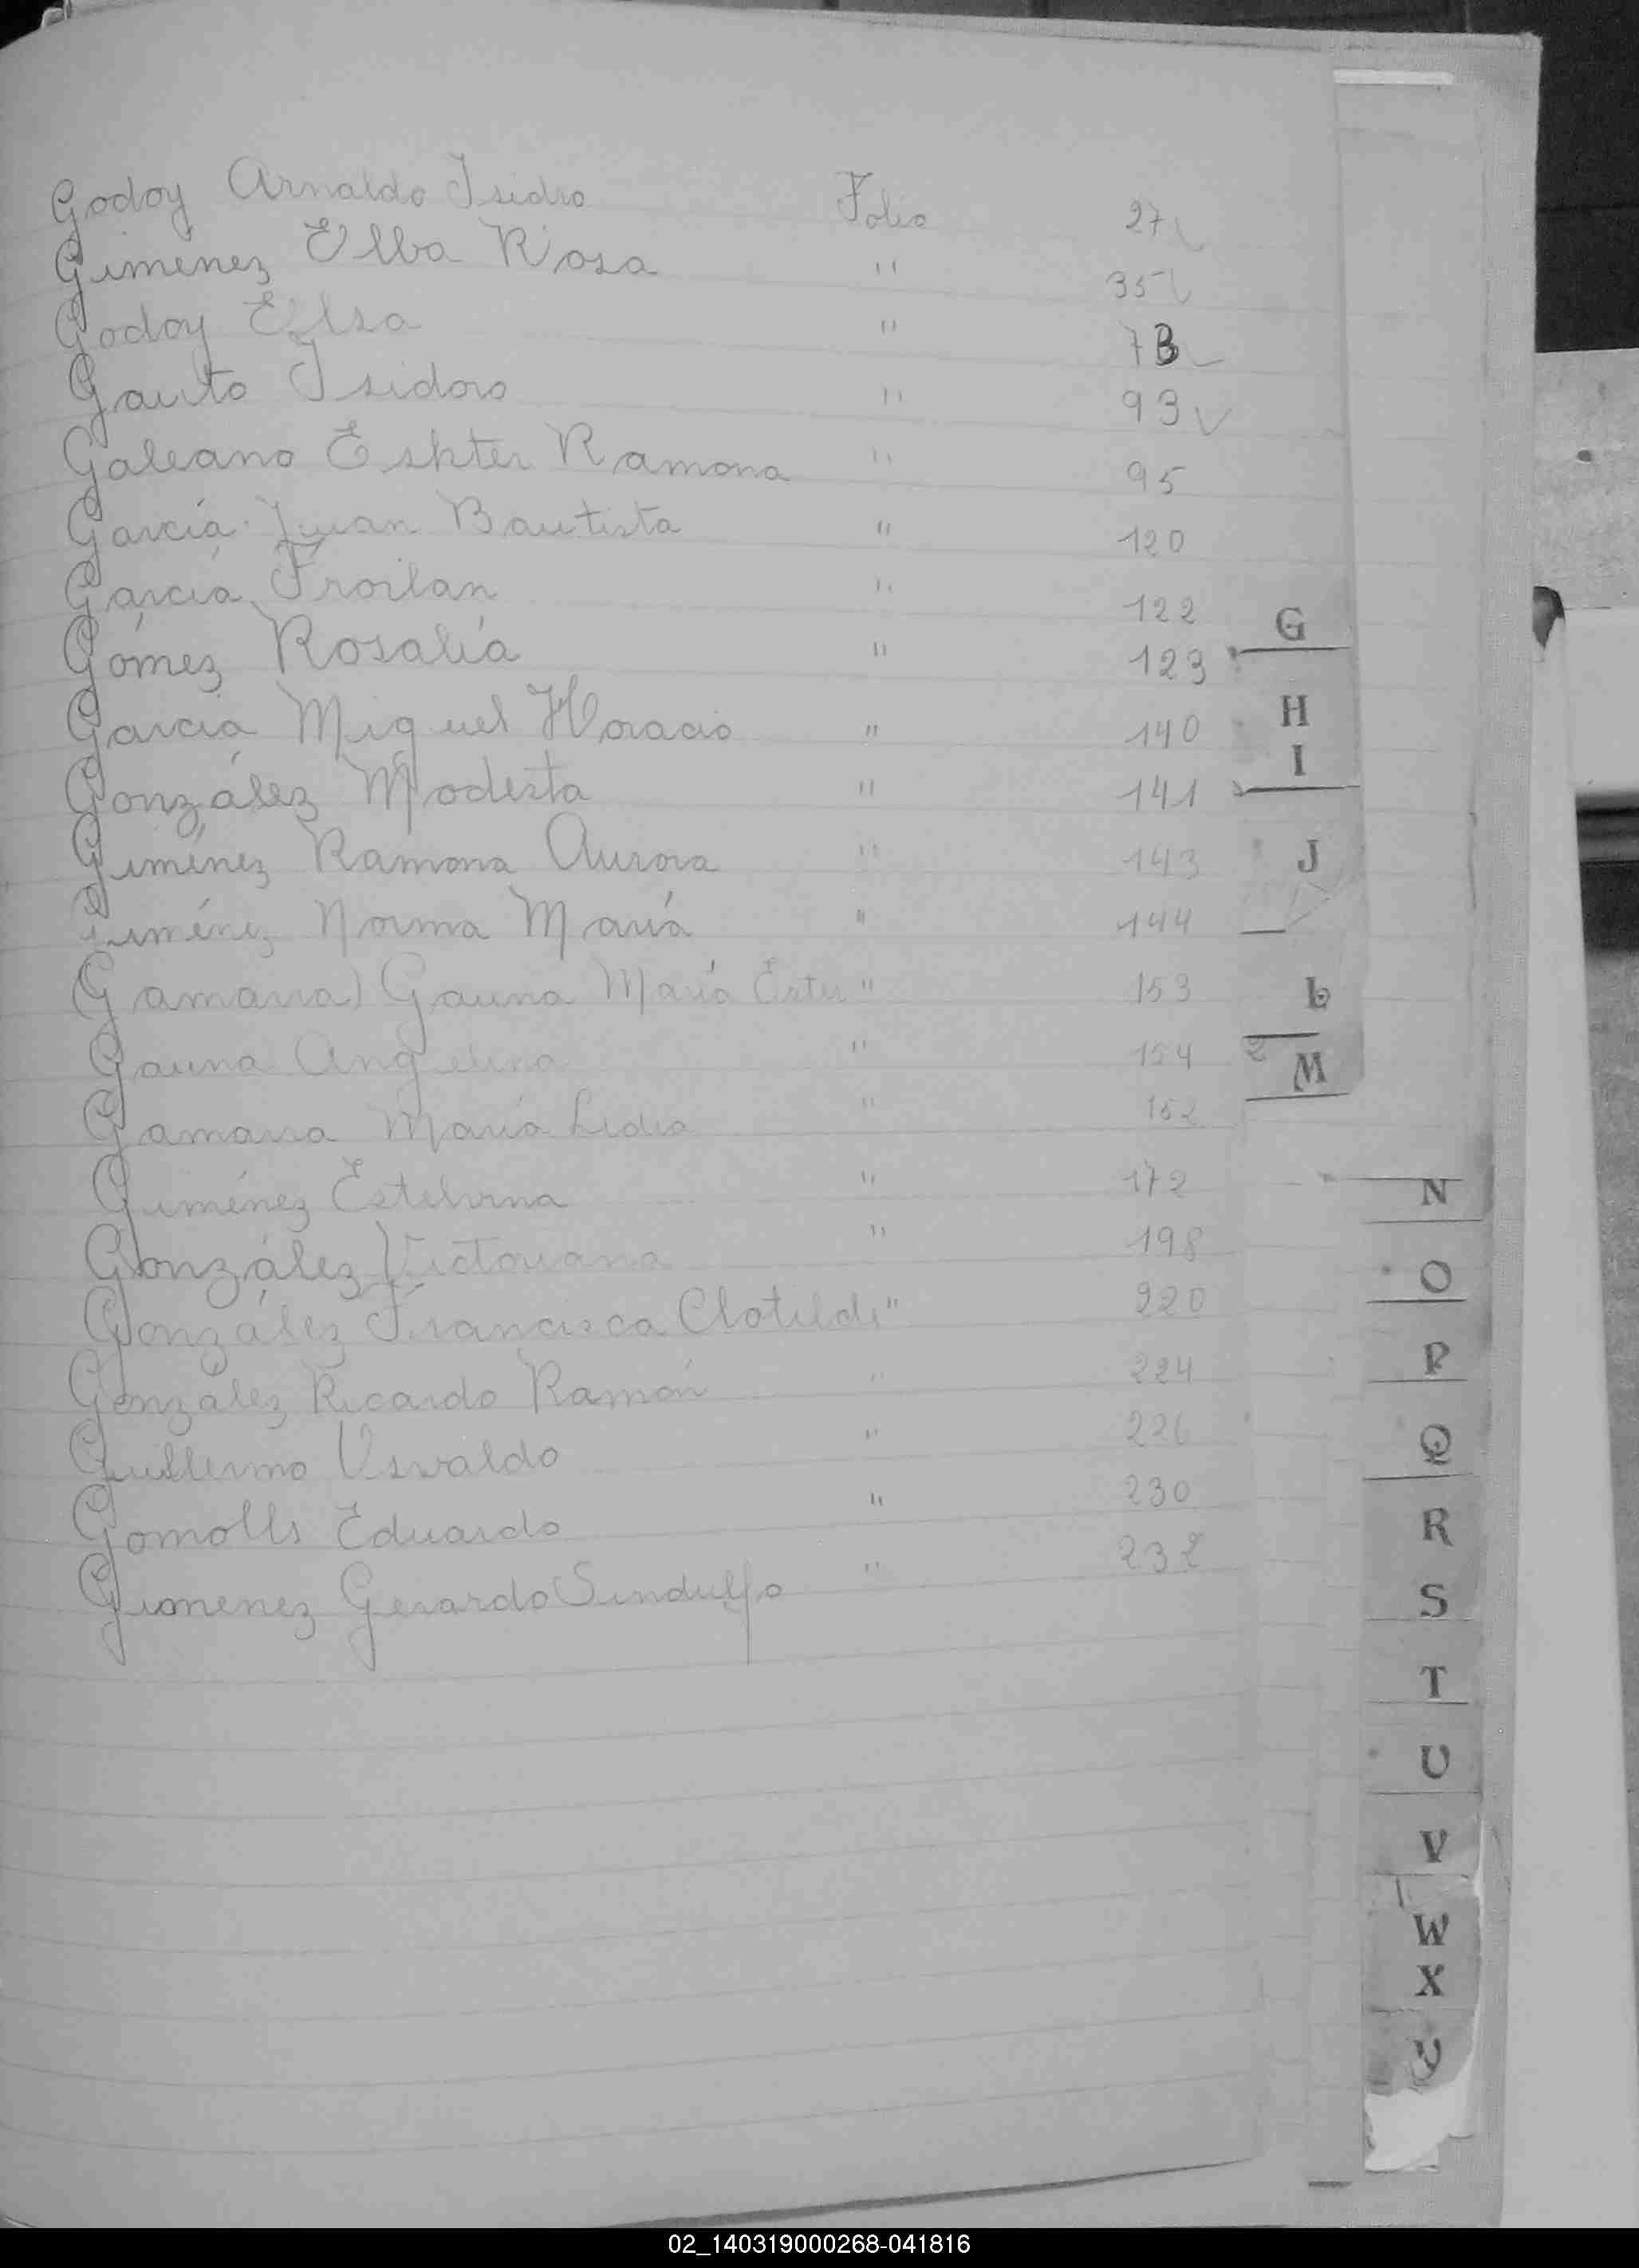 Godoy Arnaldo Isidro Folio 27
Gimenez Elba Rosa " 35
Godoy Elsa " 7B
Gauto Isidoro " 93
Galeano Eshter Ramona " 95
García Juan Bautista " 120
García Froilan " 122
Gómez Rosalía " 123
García Miguel Horacio " 140
González Modesta " 141
Giménez Ramona Aurora " 143
Giménez Norma María " 144
Gamarra) Gauna María Ester " 153
Gauna Angelina " 154
Gamarra María Lidia " 152
Giménez Estelvina " 172
González Victoriana " 198
González Francisca Clotilde " 220
González Ricardo Ramón " 224
Guillermo Usvaldo " 226
Gomolls Eduardo " 230
Gimenez Gerardo Sindulfo " 232
G
H
I
J
L
M
N
O
P
Q
R
S
T
U
V
W
X
Y
02_140319000268-041816